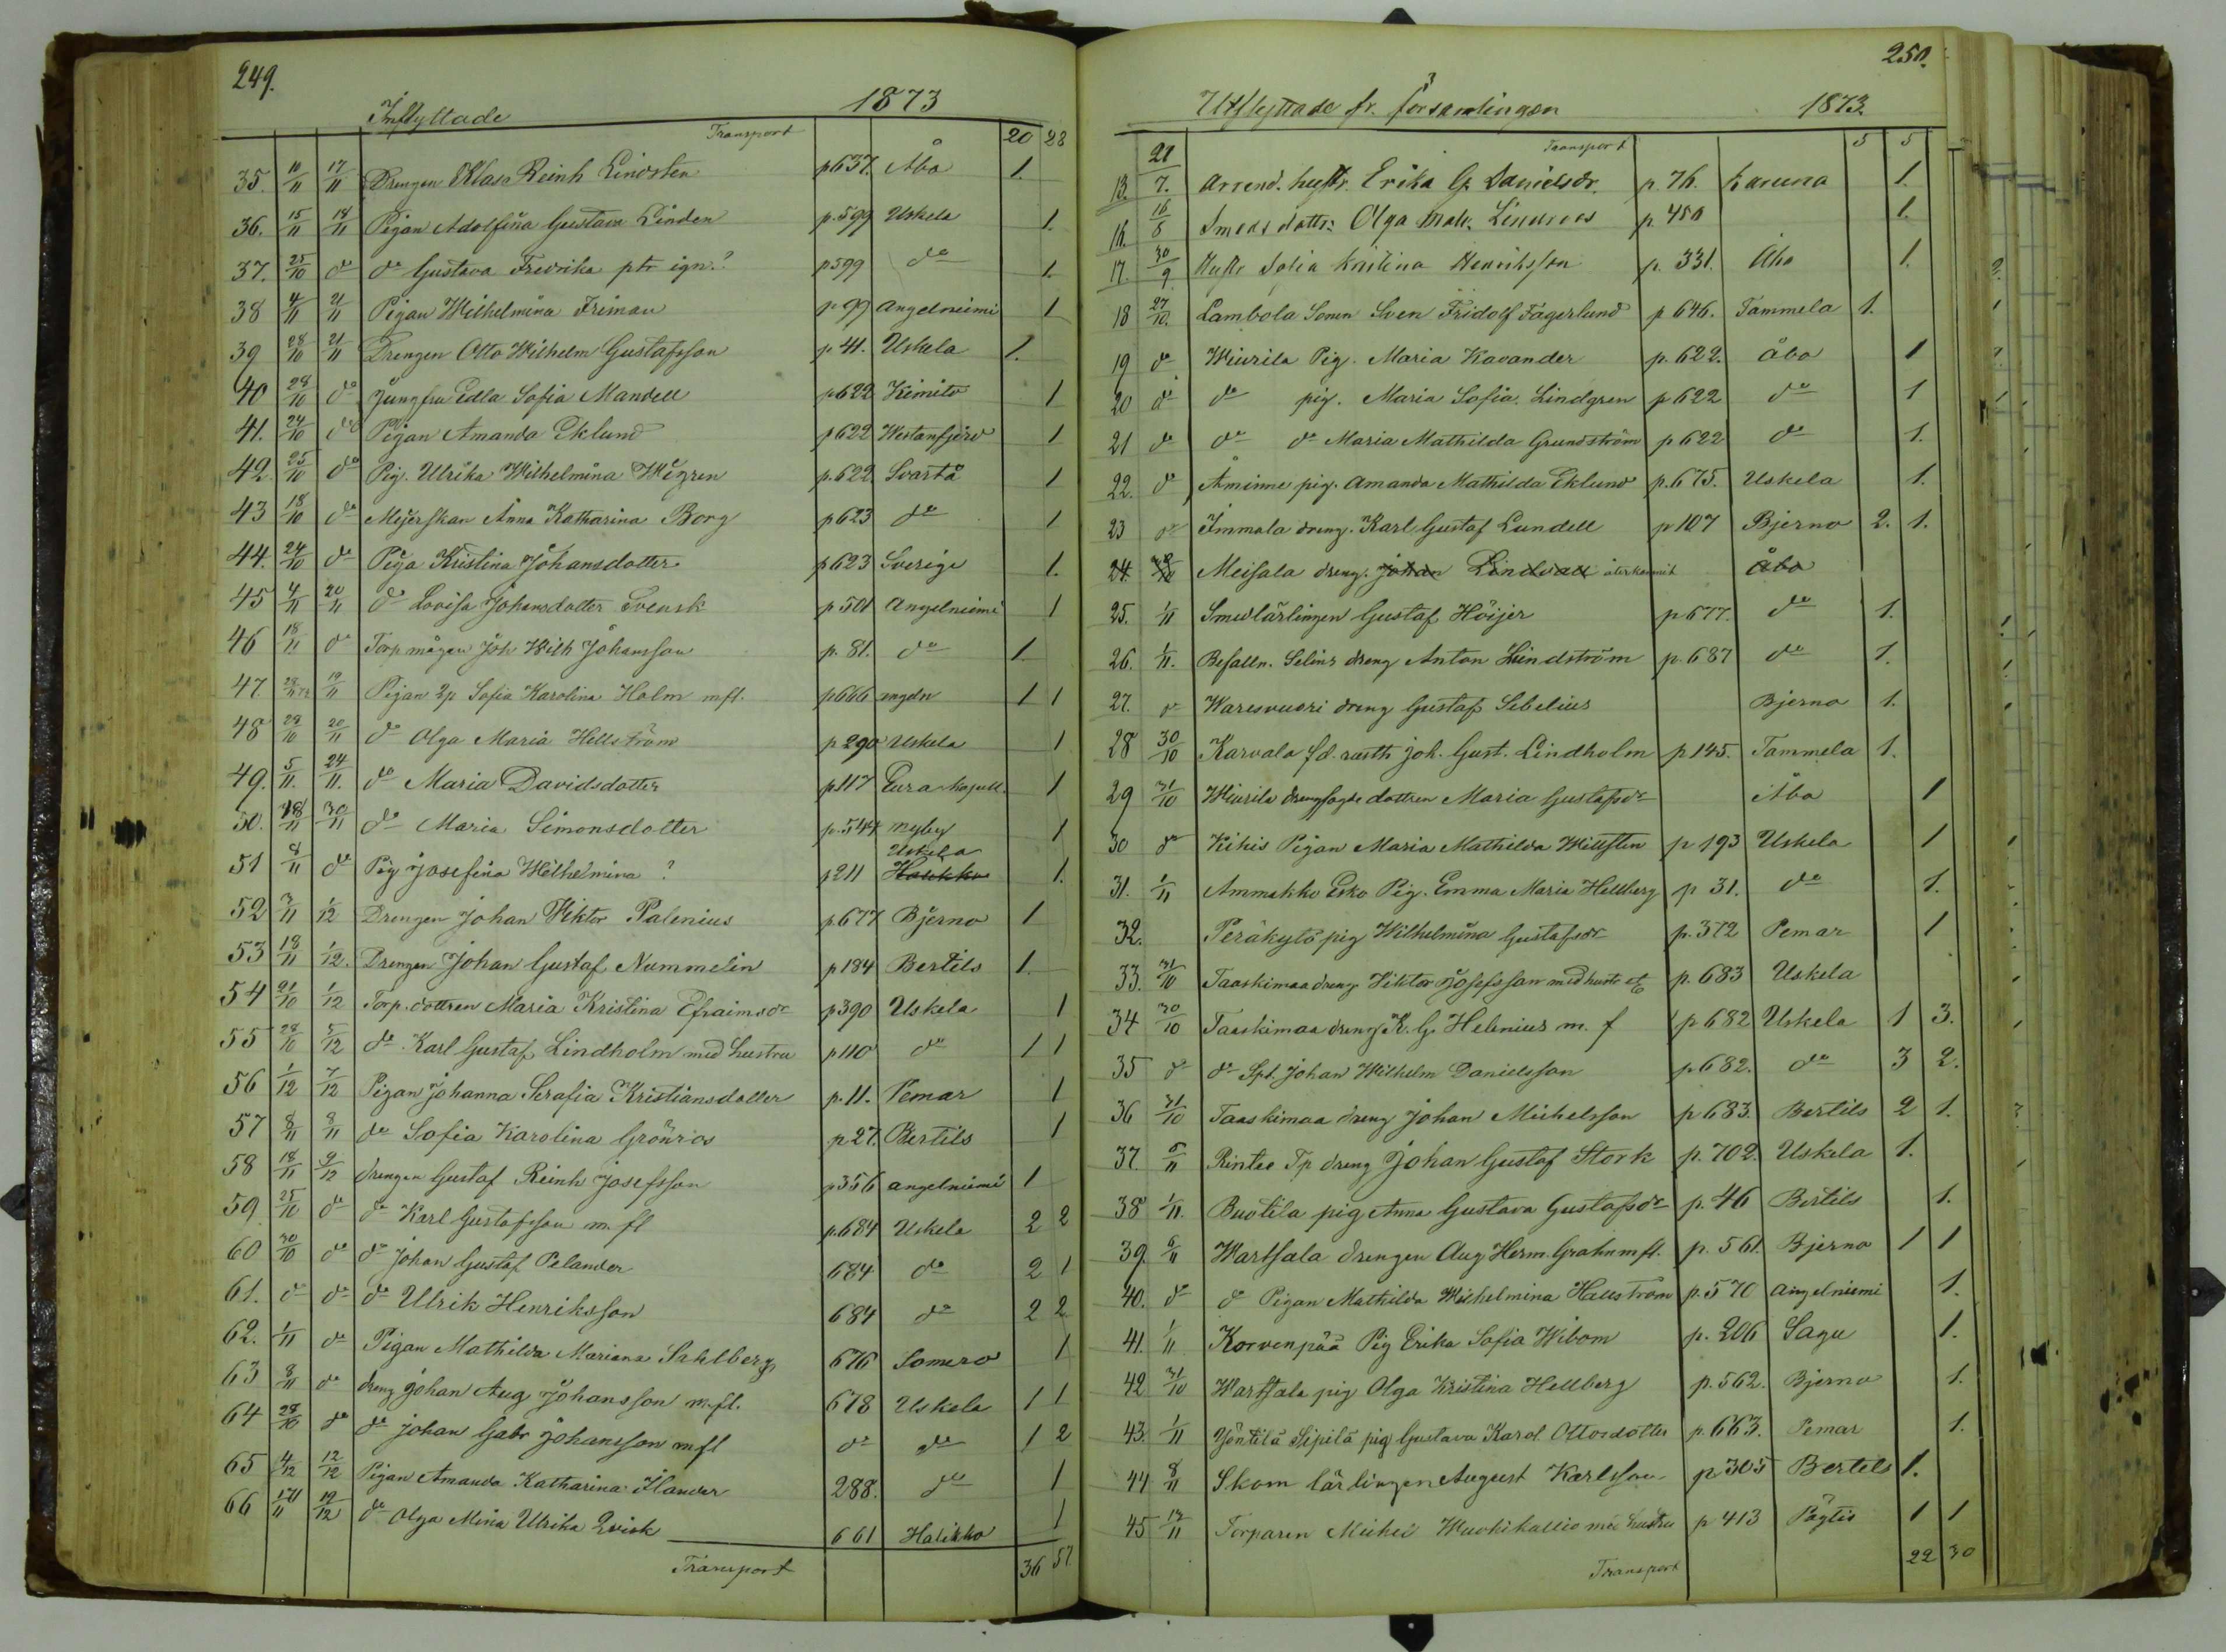 249.
Inflyttade 1873
Transport 20 28
35. 10/11 17/11 Drengen Klas Reinh Lindsten p 637. Åbo 1.
36. 15/11 18/11 Pigan Adolfina Gustava Linden p. 599 Uskela 1.
37. 25/10 do do Gustava Fredrika ptr ign.? p 599 do 1.
38 4/11 21/11 Pigan Wilhelmina Friman p 99 Angelniemi 1
39 28/10 21/11 Drengen Otto Wilhelm Gustafsson p 41. Uskela 1.
40 28/10 do Jungfru Edla Sofia Mandell p 622 Kimito 1
41. 24/10 do Pigan Amanda Eklund p 622 Westanfjerd 1
42. 25/10 do Pig. Ulrika Wilhelmina Wigren p. 622 Svartå 1
43 18/10 do Mejerskan Anna Katharina Borg p 623 do 1
44. 24/10 do Piga Kristina Johansdotter p 623 Sverige 1.
45 4/11 20/11 do Lovisa Johansdotter Svensk p 501 Angelniemi 1
46 18/11 do Torp mågen Joh Wilh Johansson p. 81. do 1
47 19/11 Pigan Sofia Karolina Holm mfl. p 666 angeln 1 1
48 29/10 20/11 do Olga Maria Hellström p 290 Uskela 1
49. 5/11. 24/11. do Maria Davidsdotter p 117 Eura kapell. 1
50. 18/11 30/11 do Maria Simonsdotter p. 544 Nyby 1
51 8/11 do Pig Josefina Wilhelmina ? p 211 Uskela Halikko 1.
52 3/11 1/12 Drengen Johan Viktor Palenius p. 677 Bjerno 1
53 18/11 1/12. Drengen Johan Gustaf Nummelin p 184 Bertils 1.
54 21/10 1/12 Torp. dottren Maria Kristina Efraimsdr p 390 Uskela 1
55 28/10 5/12 do Karl Gustaf Lindholm med hustru p 110 do 1 1
56 1/12 7/12 Pigan Johanna Serafia Kristiansdotter p. 11. Pemar 1
57 8/11 8/11 do Sofia Karolina Grönros p 27. Bertils 1
58 18/11 9/12 Drengen Gustaf Reinh Josefsson p 356 Angelniemi 1
59 25/10 do do Karl Gustafsson m. fl p. 684 Uskela 2 2
60 30/10 do do Johan Gustaf Pelander 684 do 2 1
61. do do do Ulrik Henriksson 684 do 2 2
62. 1/11 do Pigan Mathilda Mariana Sahlberg 676 Somero 1
63 8/11 do dreng Johan Aug Johansson m.fl. 678 Uskela 1 1
64 28/10 do do Johan Gabr Johansson mfl do do 1 2
65 4/12 12/12 Pigan Amanda Katharina Ilander 288. do 1
66 19/12 do Olga Mina Ulrika Qvick 661 Halikko 1
Transport 36 57
250.
Utflyttade fr. församlingen 1873
Transport 5 5
15. 21/7. Arrend. hustr. Erika G. Danielsdr. p. 76. Karuna 1.
16. 16/8 Smeds dottr. Olga Malv. Lindroos p. 450 1.
17. 30/9 Hustr Sofia Kristina Henriksson p. 331. Åbo 1.
18 27/10. Lambola Sonen Sven Fridolf Fagerlund p 646. Tammela 1.
19 do Wiurila Pig. Maria Kavander p. 622. Åbo 1
20 do do pig. Maria Sofia Lindgren p 622 do 1
21 do do do Maria Mathilda Grundström p 622 do 1.
22. do Åminne pig. Amanda Mathilda Eklund p. 675. Uskela 1.
23 do Immala dreng. Karl Gustaf Lundell p 107 Bjerno 2. 1.
24. Meisala dreng. Johan Lindvall återkommit Åbo
25. 1/11 Smedlärlingen Gustaf Höijer p 677. do 1.
26. 1/11. Befalln. Selins dreng Anton Lindström p. 687 do 1.
27. do Waresvuori dreng Gustaf Sibelius Bjerno 1.
28 30/10 Karvala fd. rustth Joh. Gust. Lindholm p 145. Tammela 1.
29 31/10 Wiurila drengfogde dottren Maria Gustafsdr Åbo 1
30 do Kihis Pigan Maria Mathilda Willsten p 193 Uskela 1
31. 1/11 Ammakko Esko Pig. Emma Maria Hellberg p 31. do 1.
32. Peräkytö pig Wilhelmina Gustafsdr p. 372 Pemar 1
33. 31/10 Taaskimaa dreng Viktor Josefsson med hustr etc p. 683 Uskela
34 30/10 Taaskimaa dreng K. G. Helenius m. f p 682 Uskela 1 3.
35 do do Spt. Johan Wilhelm Danielsson p 682. do 3 2.
36 31/10 Taaskimaa dreng Johan Michelsson p 683. Bertils 2 1.
37. 5/11 Rintee Tp dreng Johan Gustaf Stork p. 702. Uskela 1.
38 1/11. Buotila pig Anna Gustava Gustafsdr p. 46 Bertils 1.
39. 6/11 Wartsala drengen Aug Herm. Grahn m fl. p. 561. Bjerno 1 1
40. do do Pigan Mathilda Wilhelmina Hellström p. 570 Angelniemi 1.
41. 1/11 Korvenpää Pig Erika Sofia Wibom p. 206 Sagu 1.
42 31/10 Wartsala pig Olga Kristina Hellberg p. 562. Bjerno 1.
43. 1/11 Yöntilä Sipilä pig Gustava Karol. Ottosdotter p. 663. Pemar 1.
44 8/11 Skom lärlingen August Karlsson p 305 Bertels 1.
45 17/11 Torparen Michel Wuohikallio med hustru p 413 Pögtis 1 1
Transport 22 30